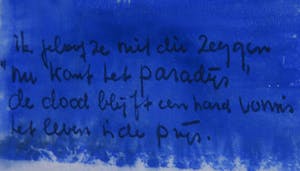 ik geloof ze niet die zeggen
"nu komt het paradijs"
de dood blijft een hard vonnis
het leven is de prijs.